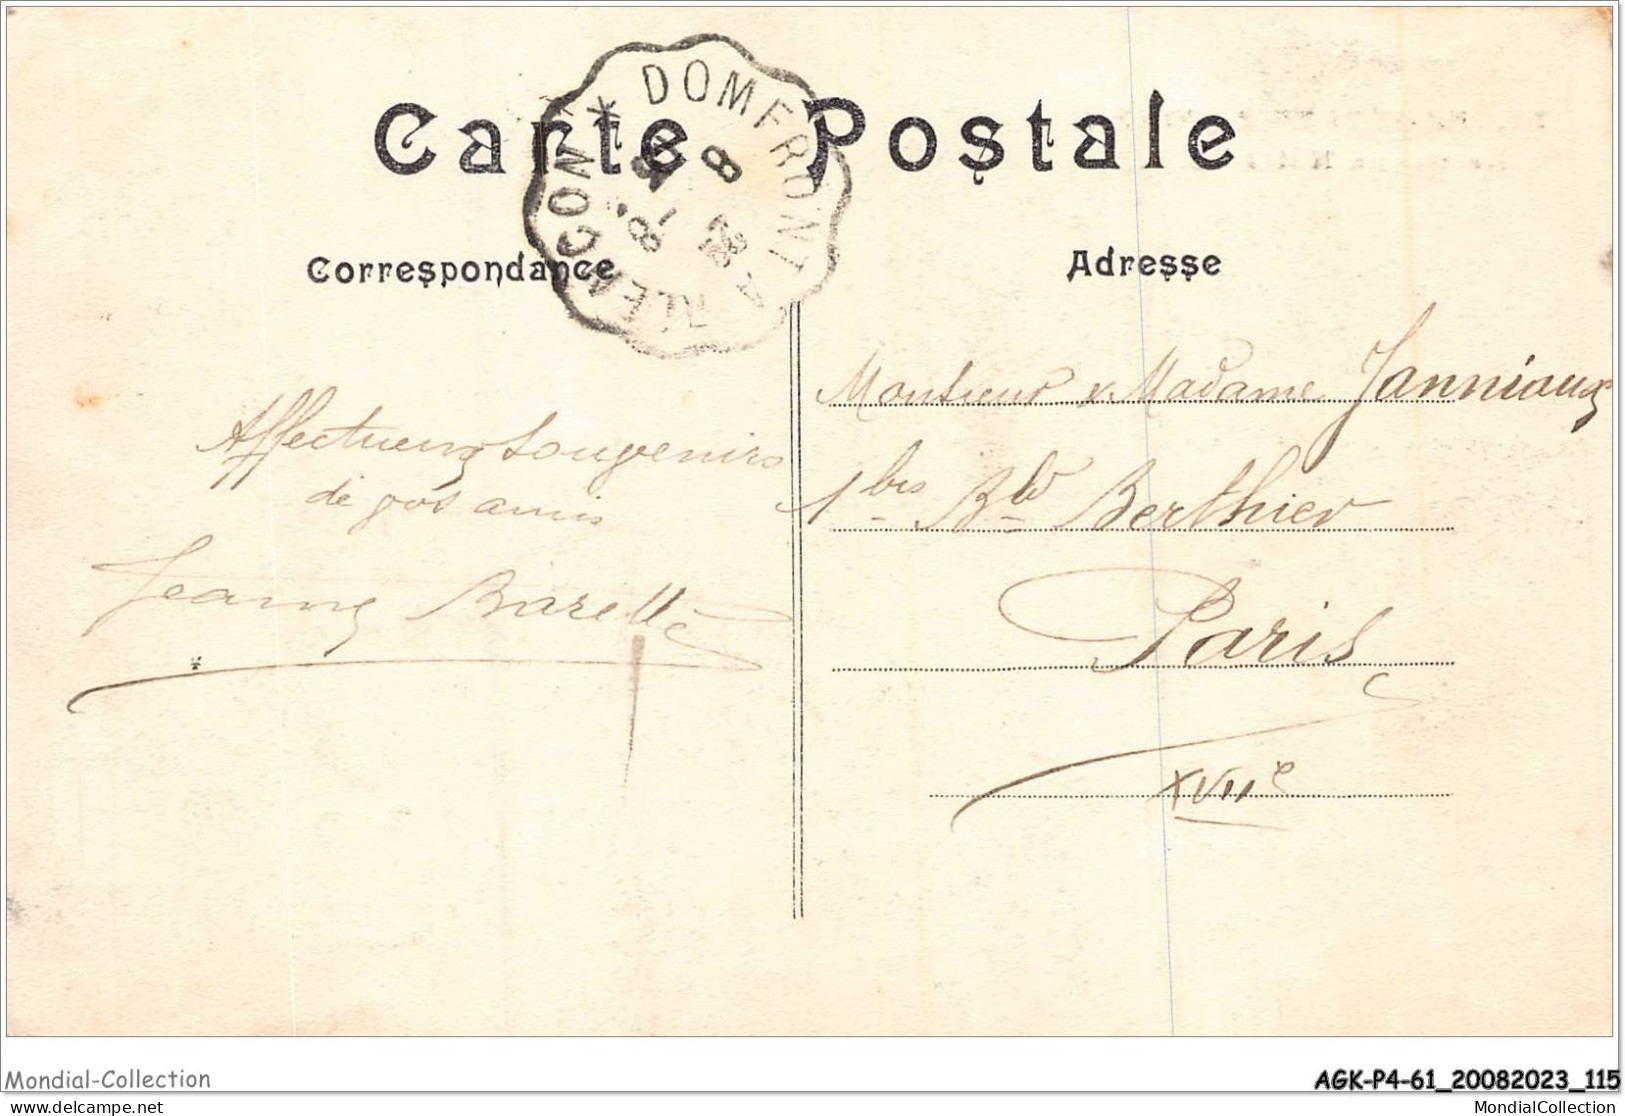 Carte Postale
DOMFRONT A ALENCON *
8
Correspondance
Adresse
Affectueux souvenirs
de vos amis
Jeanne Barelle
Monsieur & Madame Janniaux
1 bis Bld Berthier
Paris
XVIIe
Mondial-Collection
AGK-P4-61_20082023_115
www.delcampe.net
MondialCollection